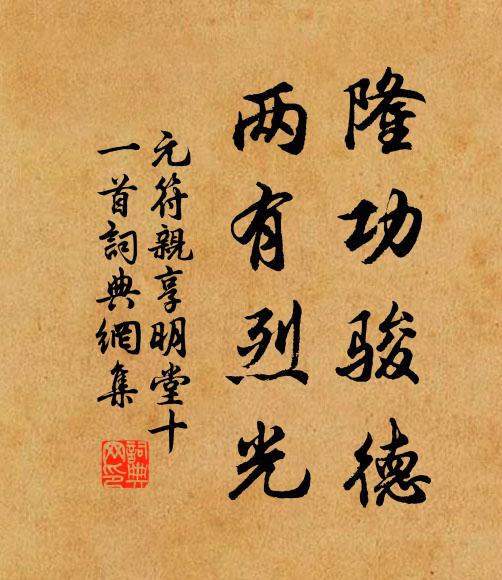 隆功骏德
两有烈光
元符親享明堂十
一首詞典網集
詞典
网印